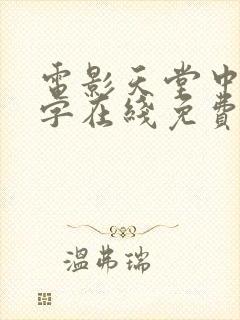 電影天堂中
字在綫免費
溫弗瑞